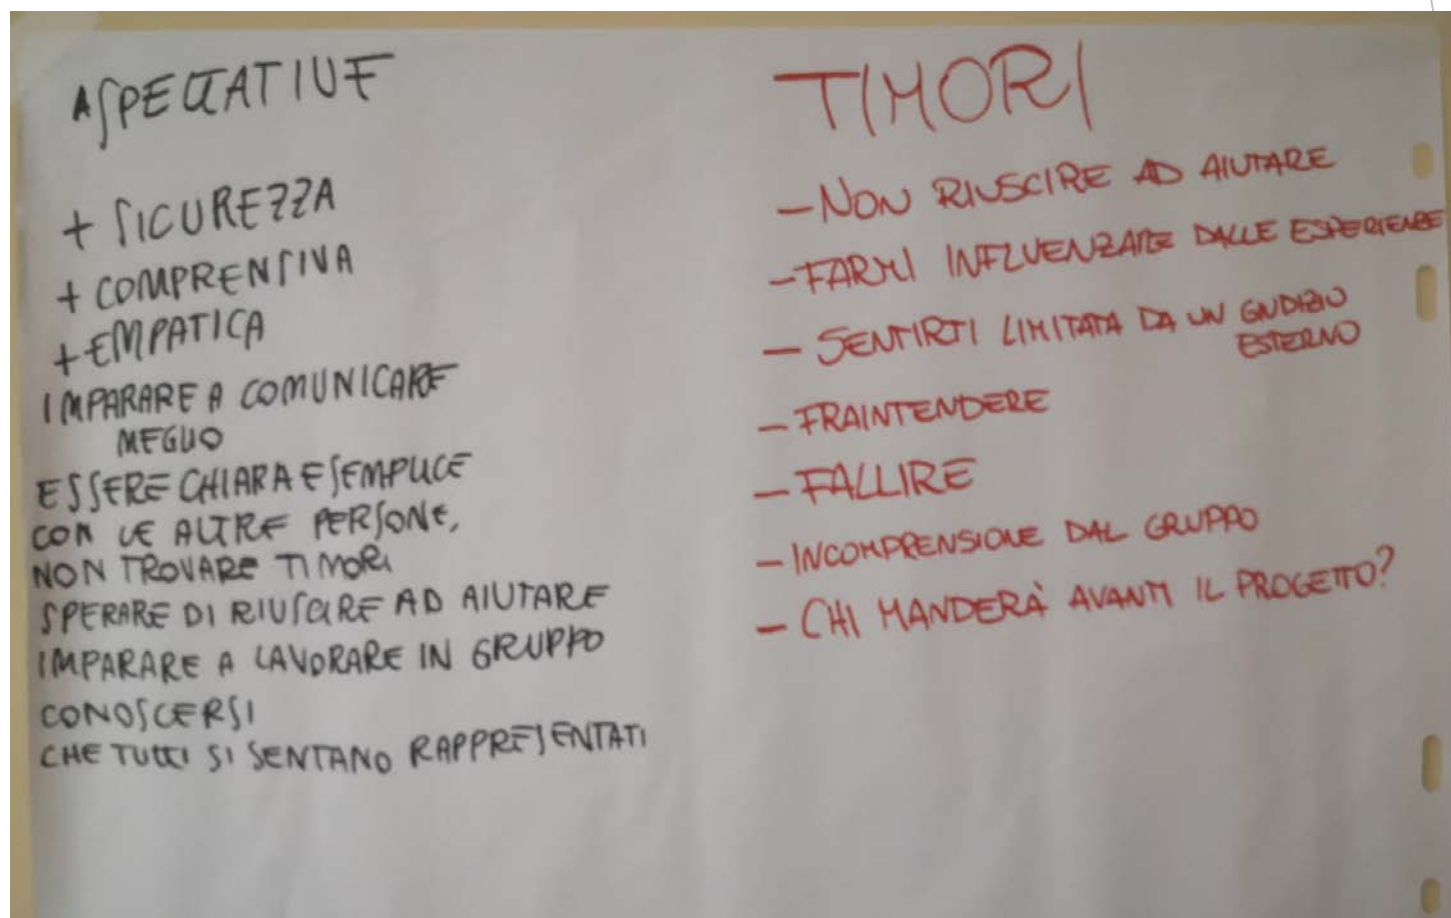 ASPETTATIVE
+ SICUREZZA
+ COMPRENSIVA
+ EMPATICA
IMPARARE A COMUNICARE
MEGLIO
ESSERE CHIARA E SEMPLICE
CON LE ALTRE PERSONE,
NON TROVARE TIMORI
SPERARE DI RIUSCIRE AD AIUTARE
IMPARARE A LAVORARE IN GRUPPO
CONOSCERSI
CHE TUTTI SI SENTANO RAPPRESENTATI
TIMORI
- NON RIUSCIRE AD AIUTARE
- FARMI INFLUENZARE DALLE ESPERIENZE
- SENTIRTI LIMITATA DA UN GIUDIZIO
ESTERNO
- FRAINTENDERE
- FALLIRE
- INCOMPRENSIONE DAL GRUPPO
- CHI MANDERÀ AVANTI IL PROGETTO?